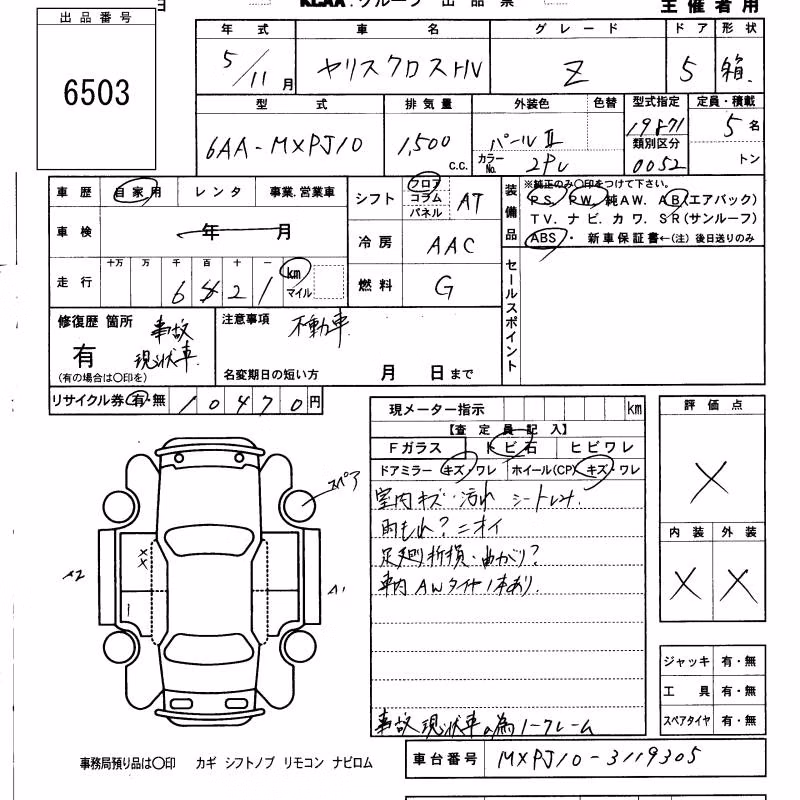 出品番号
6503
KCAA.グループ 出品票
主催者用
年式 車名 グレード ドア 形状
5/11月 ヤリスクロスHV Z 5 箱.
型式 排気量 外装色 色替 型式指定 定員・積載
6AA-MXPJ10 1,500 c.c. パールⅡ 19871 5名
カラーNo. 2PU 類別区分 0052 トン
車歴 自家用 レンタ 事業.営業車
シフト フロア コラム パネル AT
装備品 ※純正のみ〇印をつけて下さい。
PS. PW. 純AW. AB(エアバック)
TV. ナビ. カワ. SR(サンルーフ)
ABS・ 新車保証書←(注) 後日送りのみ
車検 年 月
冷房 AAC
走行 十万 万 千 百 十 一 km マイル
6 4 2 1
燃料 G
セールスポイント
修復歴 箇所 事故現状車.
有
(有の場合は〇印を)
注意事項 不動車.
名変期日の短い方 月 日まで
リサイクル券 有・無 10470円
現メーター指示 km
評価点
【査定員記入】
Fガラス トビ石 ヒビワレ
ドアミラー キズ・ワレ ホイール(CP) キズ・ワレ
室内キズ・汚れ シートしみ.
雨もれ?ニオイ
足廻り折損・曲がり?
車内AWタイヤ1本あり.
事故現状車の為ノークレーム
X
内装 外装
X X
スペア
X
X
X2
A1
ジャッキ 有・無
工具 有・無
スペアタイヤ 有・無
事務局預り品は〇印 カギ シフトノブ リモコン ナビロム
車台番号 MXPJ10-3119305